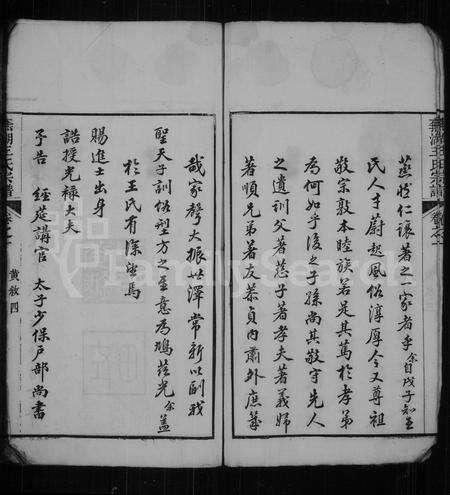 蕪湖王氏宗譜
蒸爲仁讓著之一家者乎余自戊子知蕪
民人才蔚起風俗淳厚今又尊祖
敬宗敦本睦族若是其篤於孝弟
爲何如乎後之子孫尚其敬守先人
之遺訓父著慈子著孝夫著義婦
著順兄弟著友恭貞內肅外庶幾
哉家聲大振世澤常新以副我
聖天子訓俗型方之至意爲鳩茲光余蓋
於王氏有深望焉
賜進士出身
誥授光祿大夫
予告 經筵講官 太子少保戶部尚書
蕪湖王氏宗譜
卷之一
黃敘
四
FamilySearch